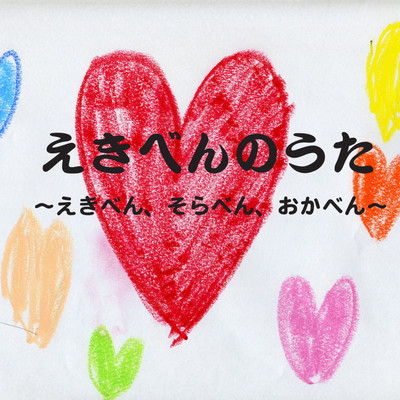 えきべんのうた
～えきべん、そらべん、おかべん～